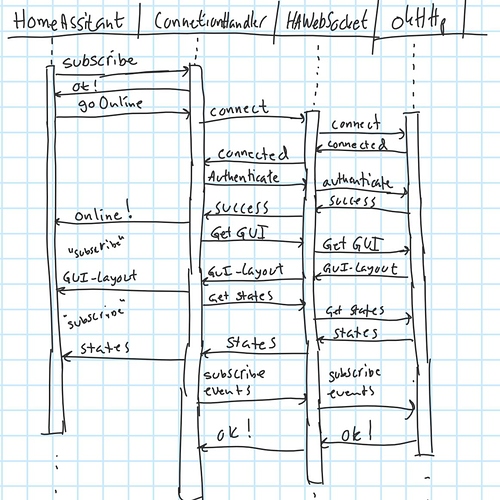 HomeAssitant | ConnectionHandler | HAWebSocket | OkHttp |
subscribe
ok!
goOnline
connect
connect
connected
connected
Authenticate
authenticate
success
success
Online!
Get GUI
Get GUI
"subscribe"
GUI-Layout
GUI-Layout
GUI-Layout
Get states
Get states
"subscribe"
states
States
states
subscribe
events
subscribe
events
ok!
ok!